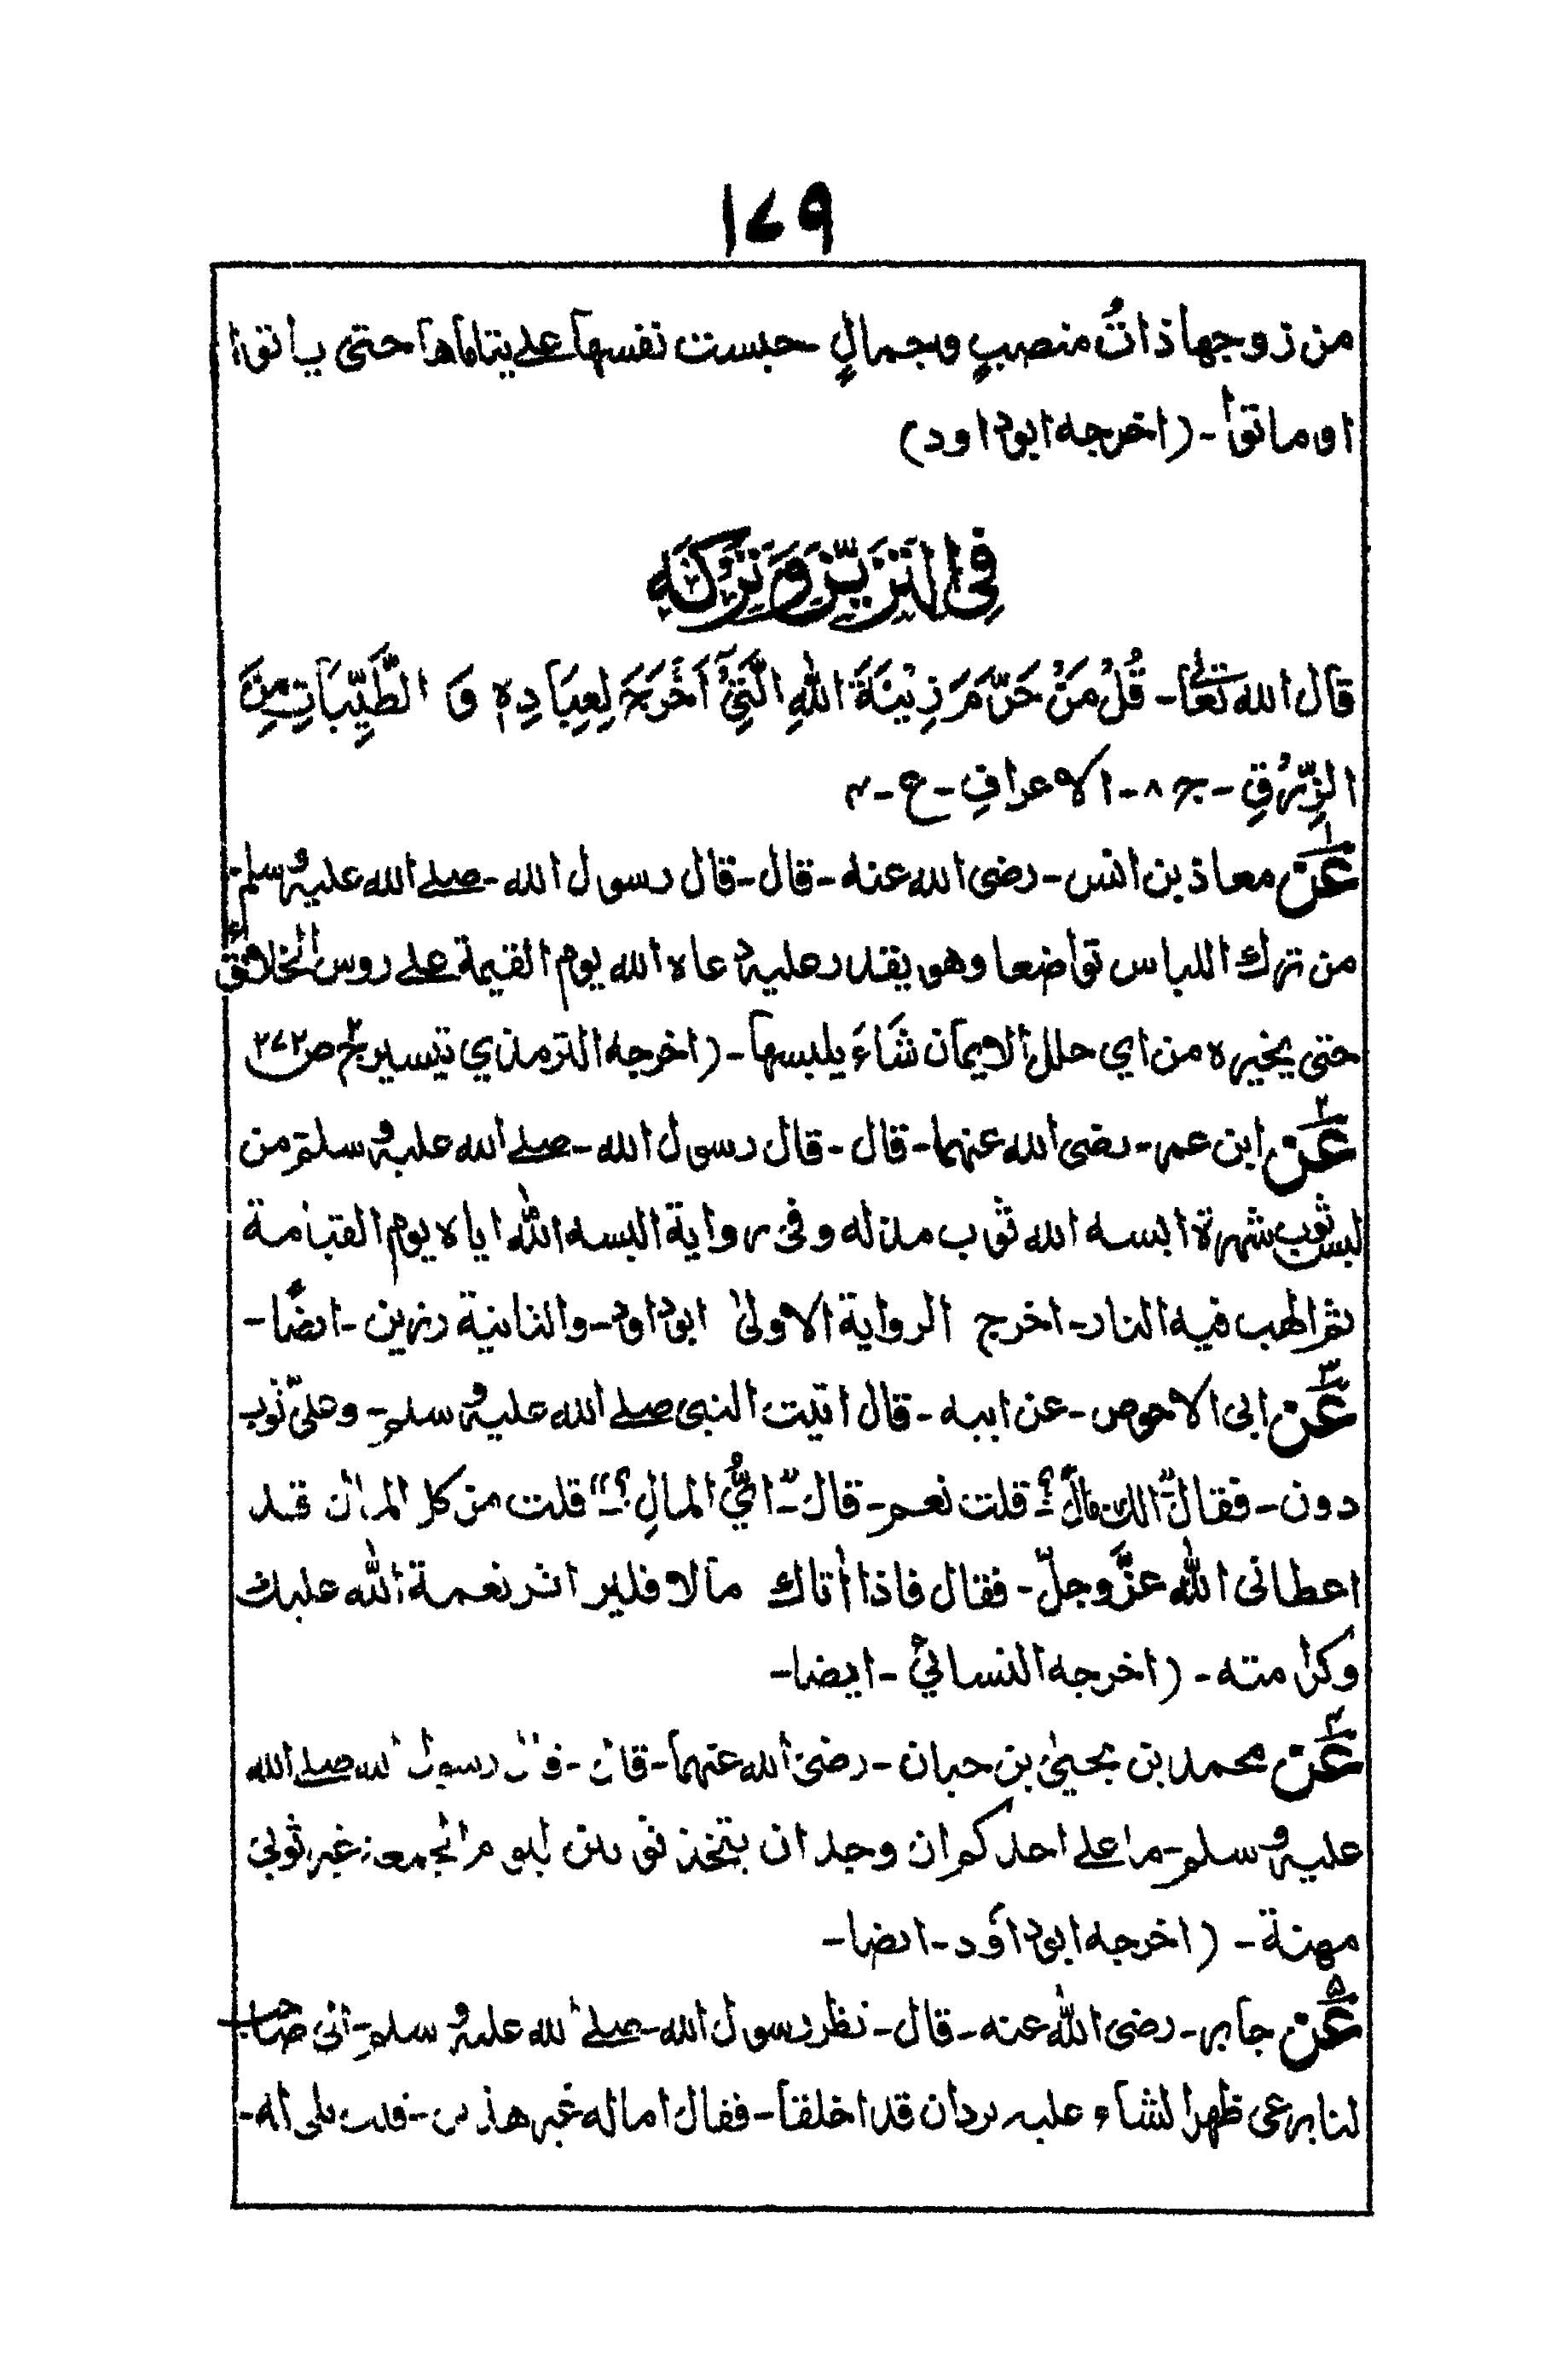 ١٧٩
من زوجها ذاتُ منصبٍ وجمالٍ حبست نفسها علے يتاماها حتى يأتوا
اوماتوا - (اخرجه ابوداود)
فِي التَزَيّنِ وَ تَرْكِهِ
قال الله تعالٰى - قُلْ مَنْ حَرَّمَ زِيْنَةَ اللهِ الَّتِيْٓ اَخْرَجَ لِعِبَادِهٖ وَ الطَّيِّبَاتِ مِنَ
الرِّزْقِ - ج ٨ - الاعرافِ - ع - ٣
١ عَنْ معاذ بن انس - رضى الله عنه - قال - قال رسول الله - صلے الله عليه وسلم -
من ترك اللباس تواضعا وهو يقدر عليه دعاه الله يوم القيمة علے روس الخلائق
حتى يخيره من اي حلل الايمان شَاءَ يلبسها - (اخرجه الترمذي تيسير ج ٢ ص ٢٧٢
٢ عَنْ ابن عمر - رضى الله عنهما - قال - قال رسول الله - صلے الله عليه وسلم من
لبس ثوب شهرة ابسه الله ثوب مذله وفى رواية البسه الله اياه يوم القيامة
ثم الهب فيه النار - اخرج الرواية الاولىٰ ابوداود - والثانية رزين - ايضًا -
٣ عَنْ ابى الاحوص - عن ابيه - قال اتيت النبى صلے الله عليه وسلم - وعلىّ ثوب
دون - فقال "الك مالٌ؟" قلت نعم - قال - "ايُّ المالِ؟" قلت من كل المال قد
اعطانى الله عزَّوجلّ - فقال فاذا أتاك مالا فلير اثر نعمة الله عليك
وكرامته - (اخرجه النسائي - ايضا -
٤ عَنْ محمد بن يحيىٰ بن حبان - رضى الله عنهما - قال - قال رسول الله صلے الله
عليه وسلم - ما علے احدكم ان وجد ان يتخذ ثوبين ليوم الجمعة غير ثوبى
مهنة - (اخرجه ابوداؤد - ايضا -
٥ عَنْ جابر - رضى الله عنه - قال - نظر رسول الله - صلے الله عليه وسلم - الى صاحب
لنا يرعى ظهرا لشاء عليه بردان قد اخلقا - فقال اماله غير هذين - قلت بلى له -